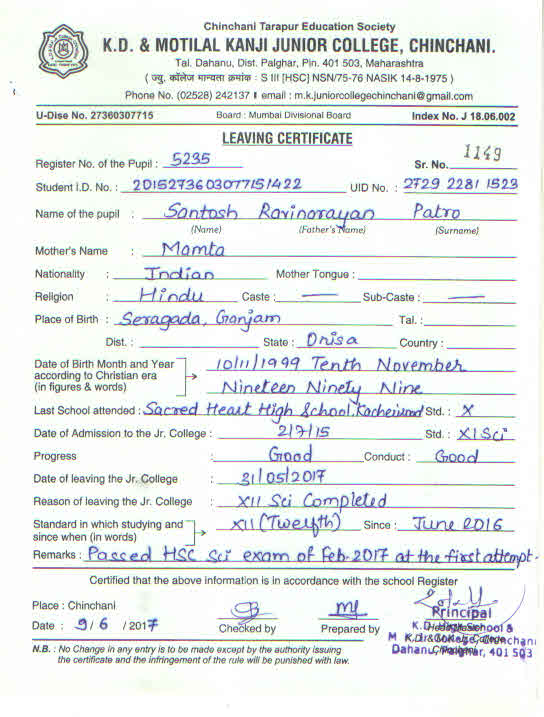 Chinchani Tarapur Education Society
K.D. & MOTILAL KANJI JUNIOR COLLEGE, CHINCHANI.
Tal. Dahanu, Dist. Palghar, Pin. 401 503, Maharashtra
( ज्यु. कॉलेज मान्यता क्रमांक : S III [HSC] NSN/75-76 NASIK 14-8-1975 )
Phone No. (02528) 242137 email : m.k.juniorcollegechinchani@gmail.com
U-Dise No. 27360307715 Board : Mumbai Divisional Board Index No. J 18.06.002
LEAVING CERTIFICATE
Register No. of the Pupil : 5235 Sr. No. 1149
Student I.D. No. : 2015273603077151422 UID No. : 2729 2281 1523
Name of the pupil : Santosh Ravinarayan Patro
(Name) (Father's Name) (Surname)
Mother's Name : Mamta
Nationality : Indian Mother Tongue :
Religion : Hindu Caste : — Sub-Caste : —
Place of Birth : Seragada, Ganjam Tal. :
Dist. : State : Orisa Country :
Date of Birth Month and Year 10/11/1999 Tenth November
according to Christian era
(in figures & words) Nineteen Ninety Nine
Last School attended : Sacred Heart High School, Std. : X
Date of Admission to the Jr. College : 2/7/15 Std. : XI Sci
Progress : Good Conduct : Good
Date of leaving the Jr. College : 31/05/2017
Reason of leaving the Jr. College : XII Sci Completed
Standard in which studying and XII (Twelfth) Since : June 2016
since when (in words)
Remarks : Passed HSC Sci exam of Feb-2017 at the first attempt.
Certified that the above information is in accordance with the school Register
Place : Chinchani
Date : 9/6/2017 Checked by Prepared by Principal
N.B. : No Change in any entry is to be made except by the authority issuing
the certificate and the infringement of the rule will be punished with law.
Dahanu, Palghar, 401 503